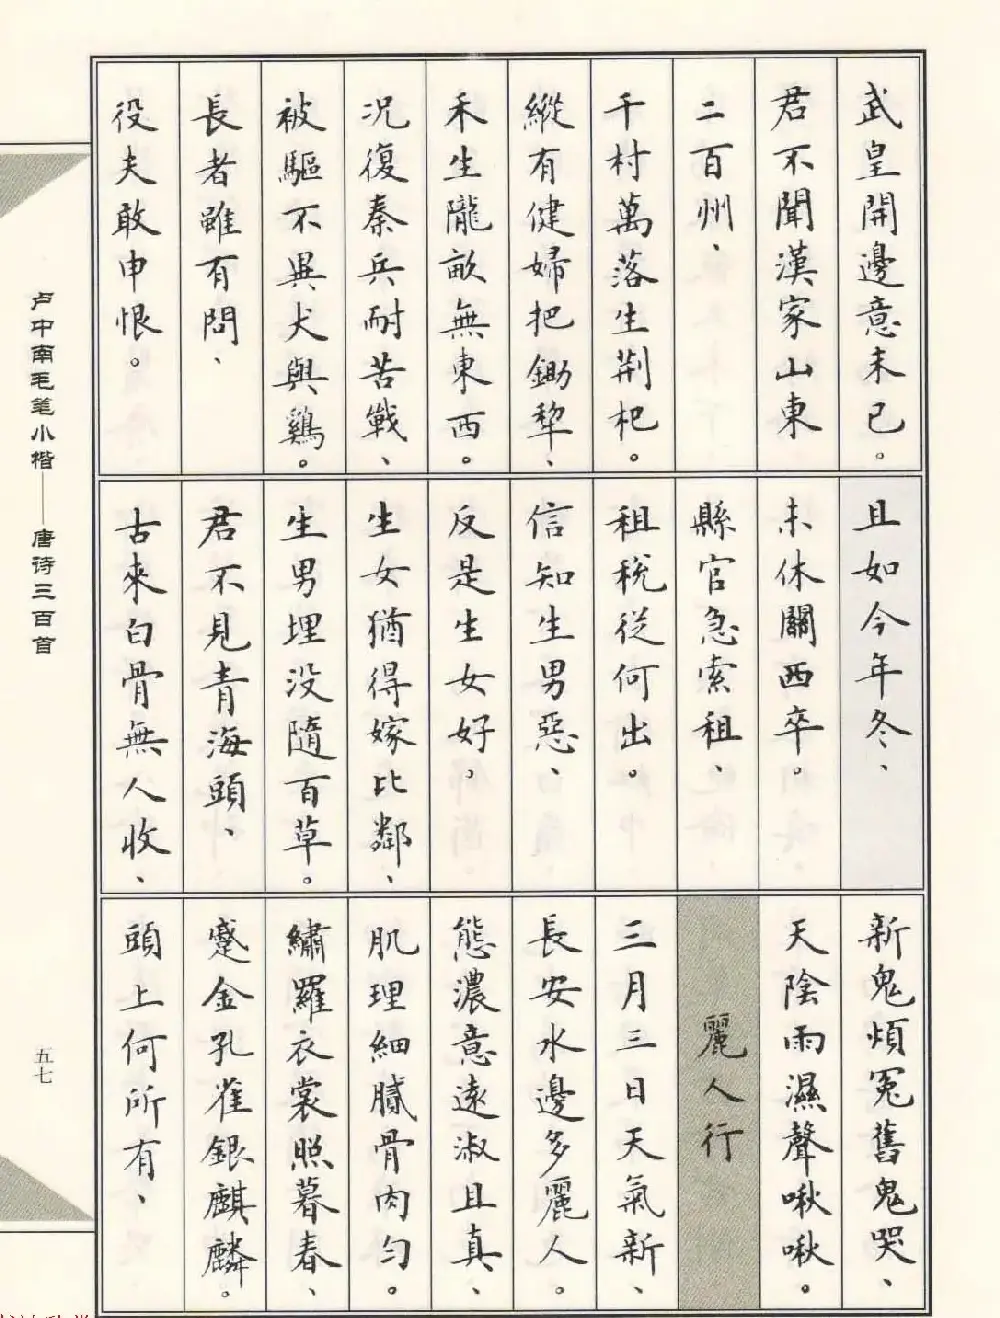 武皇開邊意未已。
君不聞漢家山東
二百州、
千村萬落生荆杞。
縱有健婦把鋤犂、
禾生隴畝無東西。
况復秦兵耐苦戰、
被驅不異犬與鷄。
長者雖有問、
役夫敢申恨。
且如今年冬、
未休關西卒。
縣官急索租、
租税從何出。
信知生男惡、
反是生女好。
生女猶得嫁比鄰、
生男埋没隨百草。
君不見青海頭、
古來白骨無人收、
新鬼煩冤舊鬼哭、
天陰雨濕聲啾啾。
麗人行
三月三日天氣新、
長安水邊多麗人。
態濃意遠淑且真、
肌理細膩骨肉匀。
繡羅衣裳照暮春、
蹙金孔雀銀麒麟。
頭上何所有、
卢中南毛笔小楷——唐诗三百首
五七